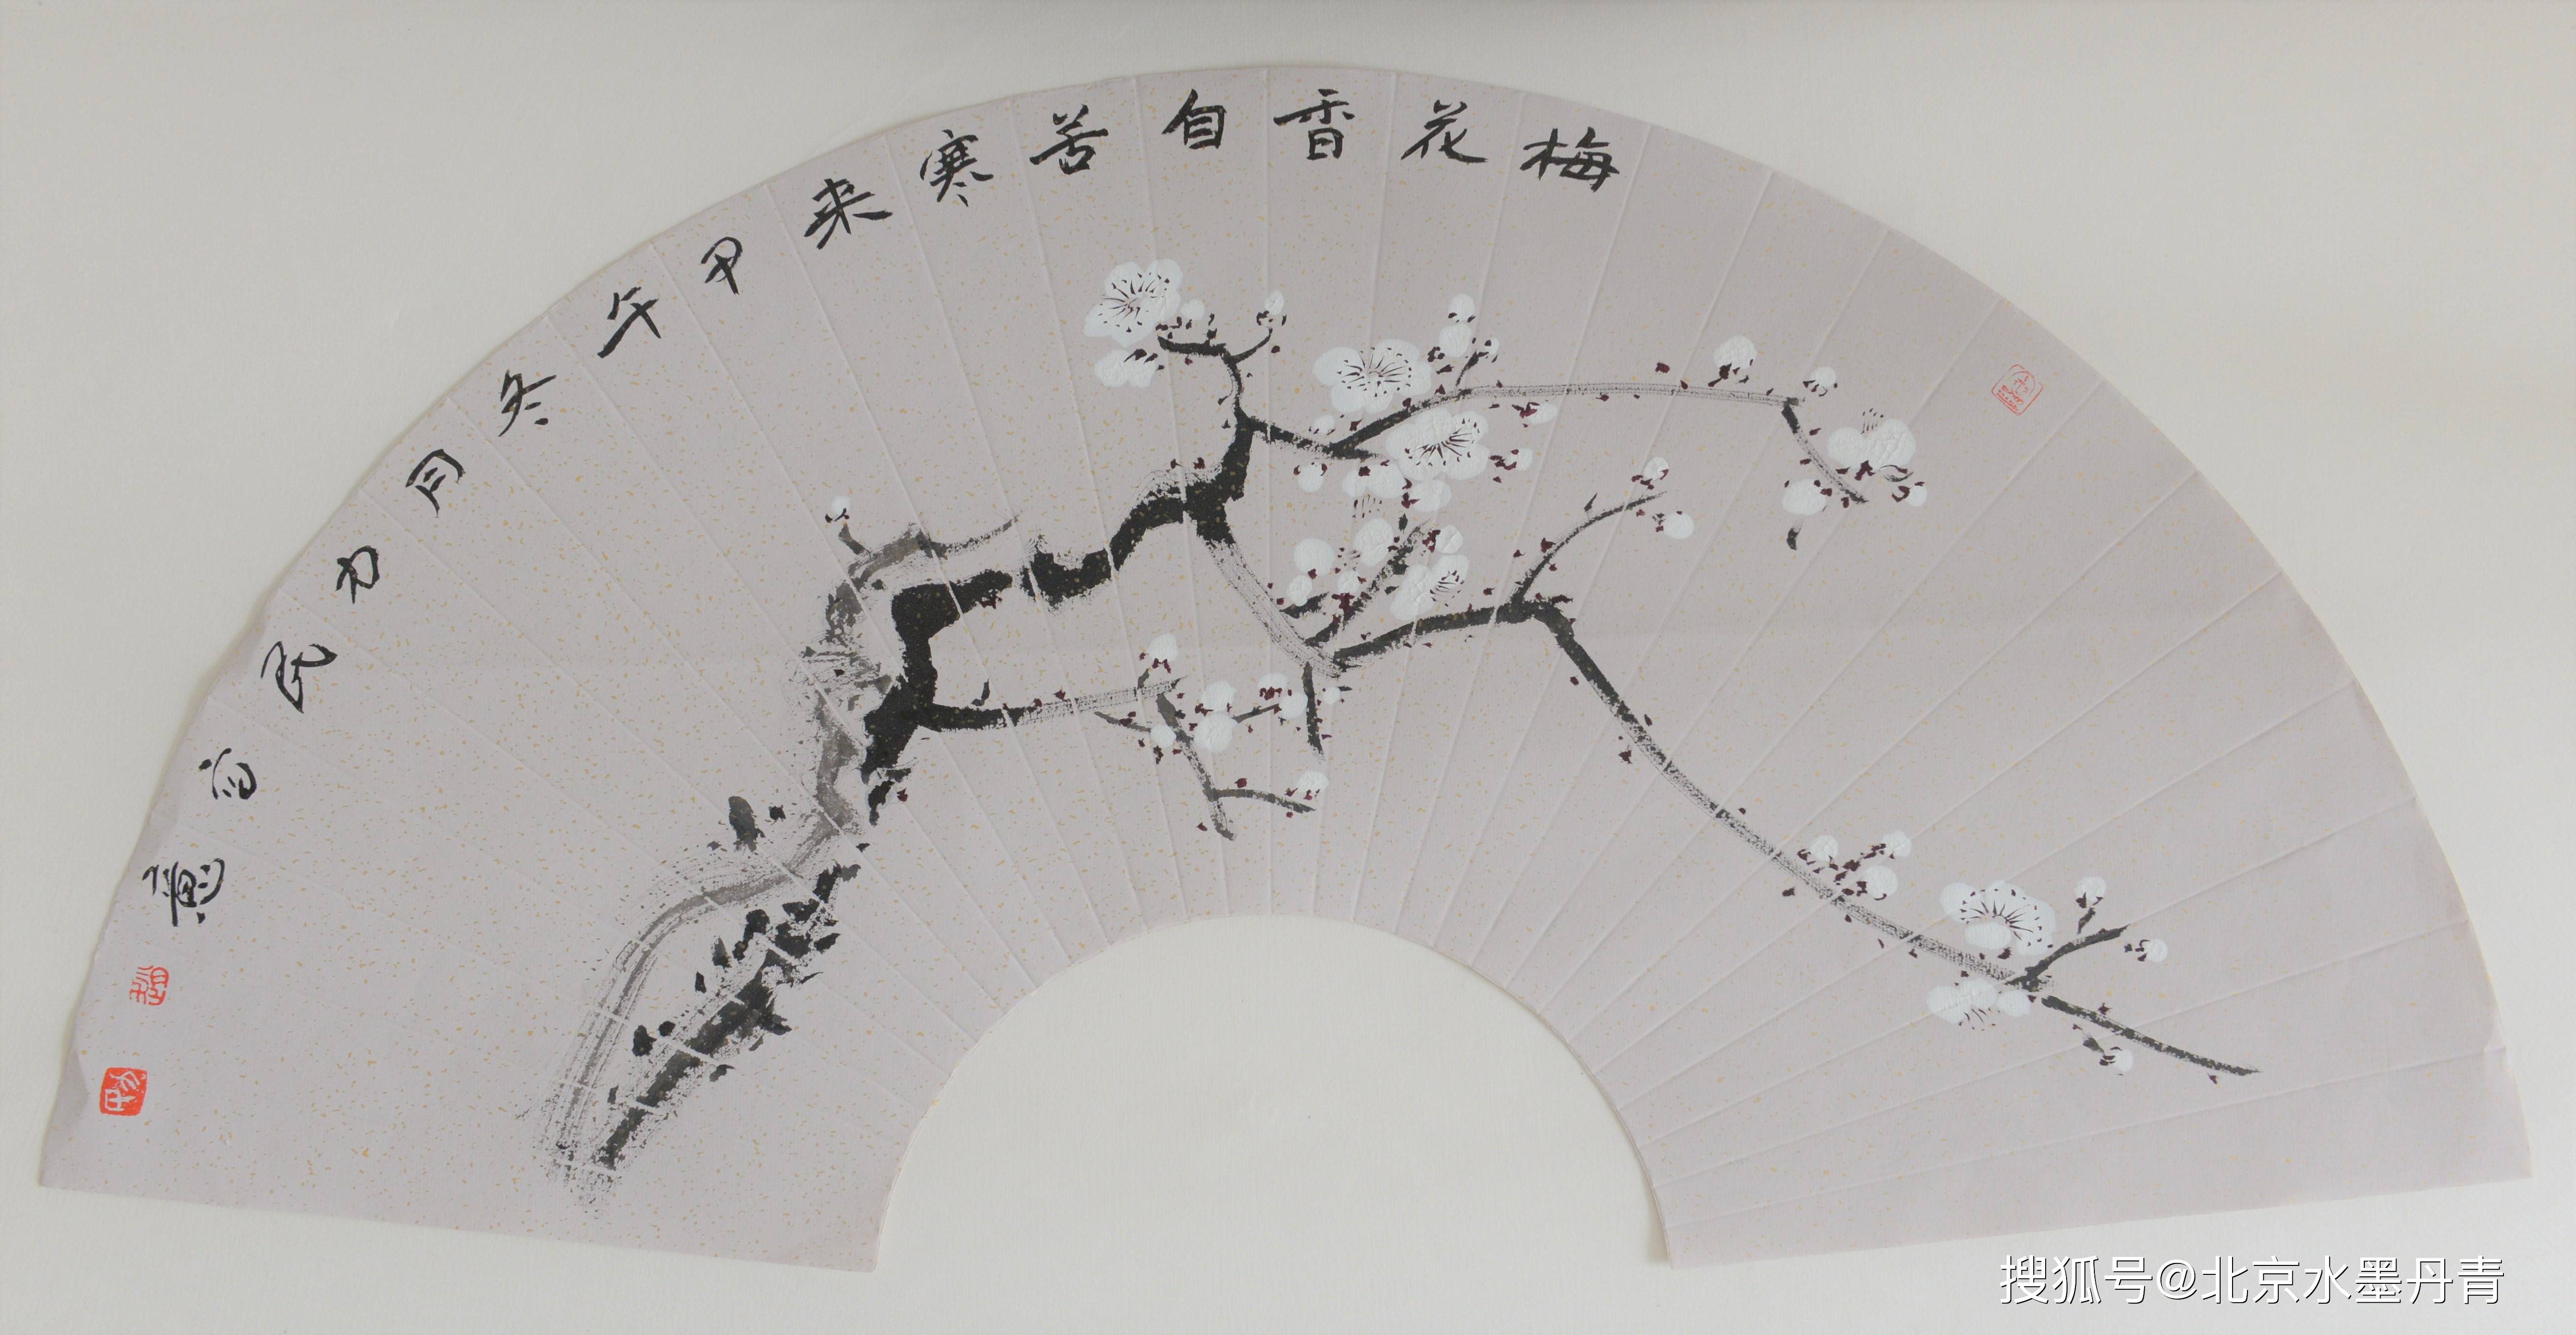 梅花香自苦寒来甲午冬月
搜狐号@北京水墨丹青